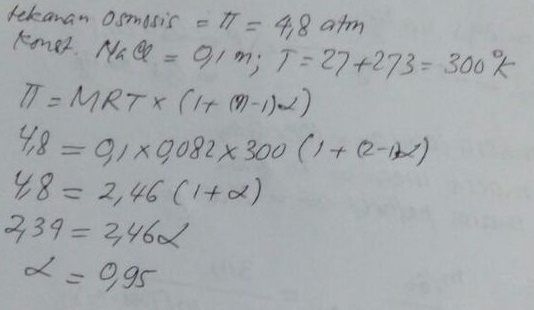 tekanan osmosis = π = 4,8 atm
Konst. NaCl = 0,1 m; T = 27+273 = 300°K
π = MRT x (1+(n-1)α)
4,8 = 0,1 x 0,082 x 300 (1+(2-1)α)
4,8 = 2,46 (1+α)
2,34 = 2,46α
α = 0,95